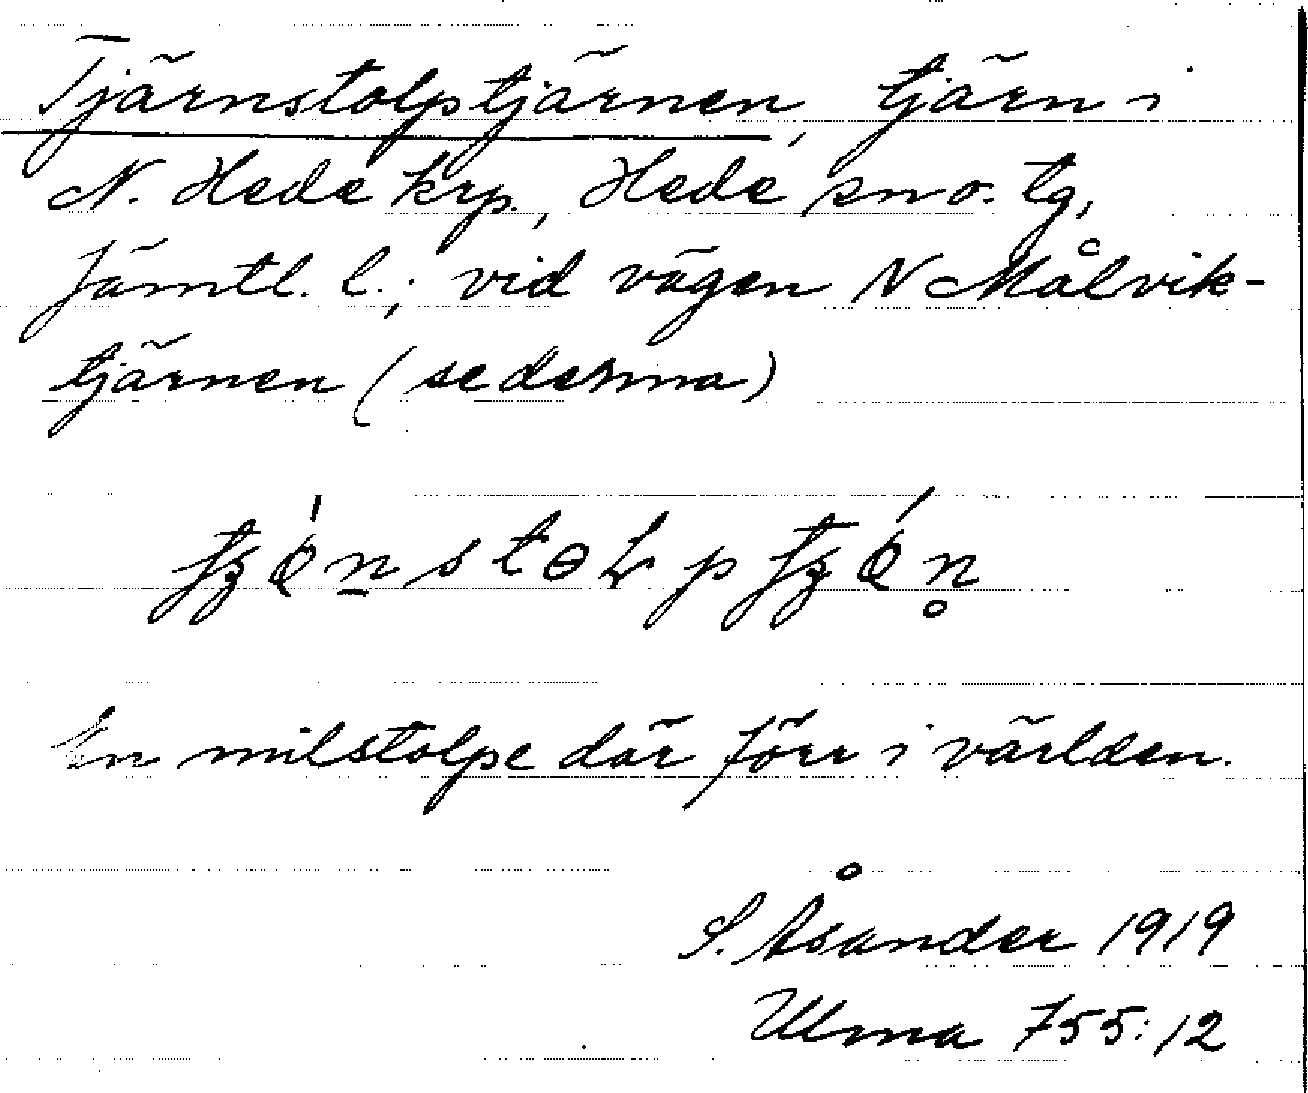 Tjärnstolptjärnen, tjärn i
N. Hede krp., Hede sn o. tg,
Jämtl. l.; vid vägen N Målvik-
tjärnen (se denna)
En milstolpe där förr i världen.
S. Åsander 1919
Ulma 755:12